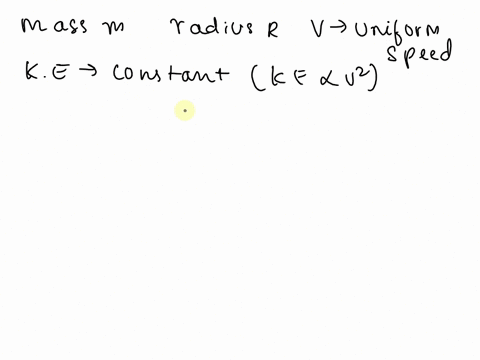 mass m radius R V→Uniform speed
K.E → constant (KE ∝ v²)